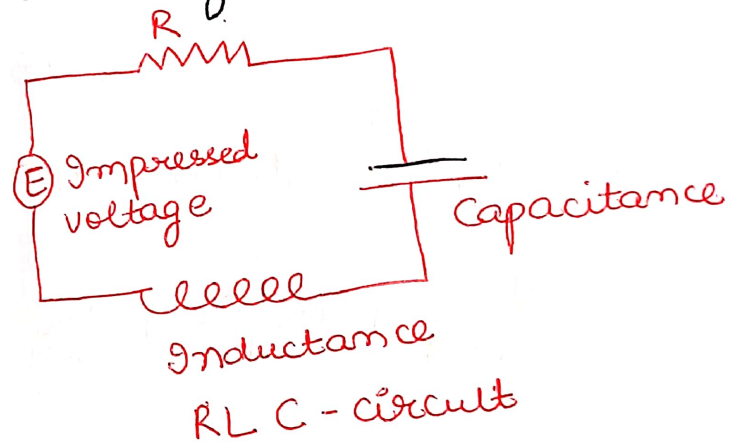 R
E Impressed
voltage
Capacitance
Inductance
RLC - circult